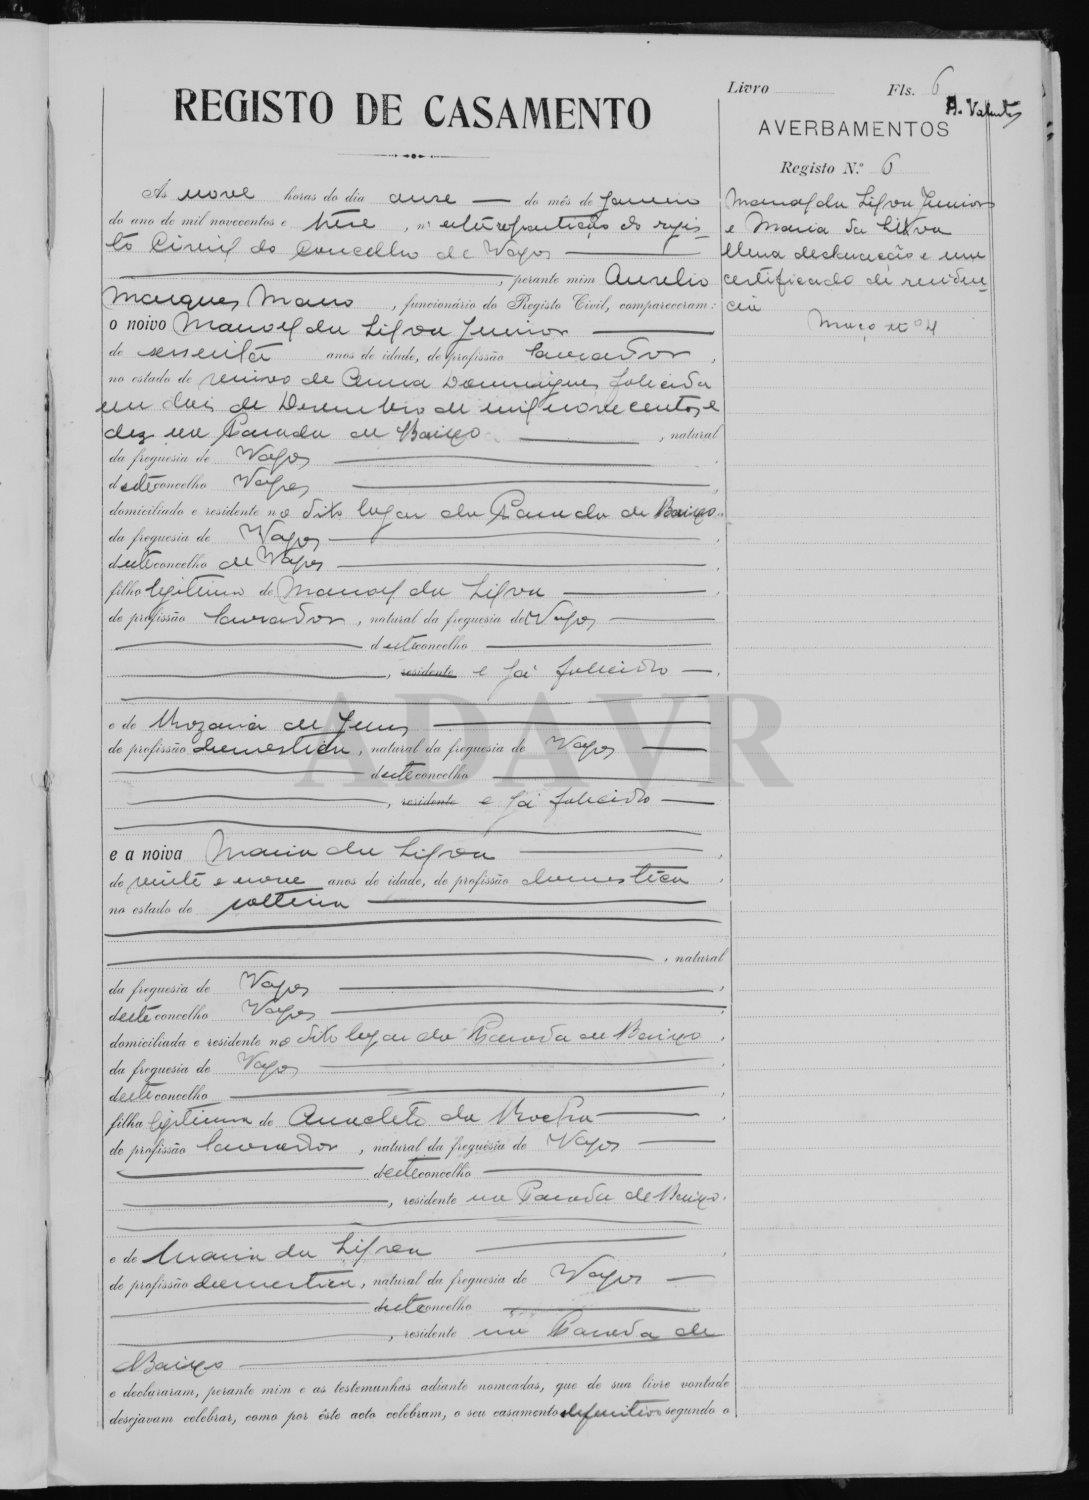 Livro Fls. 6
A. Valente
REGISTO DE CASAMENTO
AVERBAMENTOS
Registo N.º 6
Manoel da Silva Junior
e Maria da Silva
Uma declaração e um
certificado de residen-
cia
Maço nº 4
Ás nove horas do dia onze — do mês de Janeiro
do ano de mil novecentos e treze, n'esta repartição do regis-
to Civil do Concelho de Vagos
, perante mim Aurelio
Marques Mano, funcionário do Registo Civil, compareceram:
o noivo Manoel da Silva Junior
de sessenta anos de idade, de profissão lavrador,
no estado de viuvo de Anna Domingues, falecida
em dois de Dezembro de mil novecentos e
dez na Parada de Baixo, natural
da freguesia de Vagos
deste concelho Vagos
domiciliado e residente no dito lugar da Parada de Baixo
da freguesia de Vagos
deste concelho de Vagos
filho legitimo de Manoel da Silva
de profissão lavrador, natural da freguesia de Vagos
deste concelho
, residente e já falecido
e de Rozaria de Jesus
de profissão domestica, natural da freguesia de Vagos
deste concelho
, residente e já falecido
e a noiva Maria da Silva
de vinte e nove anos de idade, de profissão domestica
no estado de solteira
, natural
da freguesia de Vagos
deste concelho Vagos
domiciliada e residente no dito lugar da Parada de Baixo
da freguesia de Vagos
deste concelho
filha legitima de Anacleto da Rocha
de profissão lavrador, natural da freguesia de Vagos
deste concelho
, residente na Parada de Baixo.
e de Maria da Silva
de profissão domestica, natural da freguesia de Vagos
deste concelho
, residente na Parada de
Baixo
e declararam, perante mim e as testemunhas adiante nomeadas, que de sua livre vontade
desejavam celebrar, como por êste acto celebram, o seu casamento definitivo segundo o
ADAVR